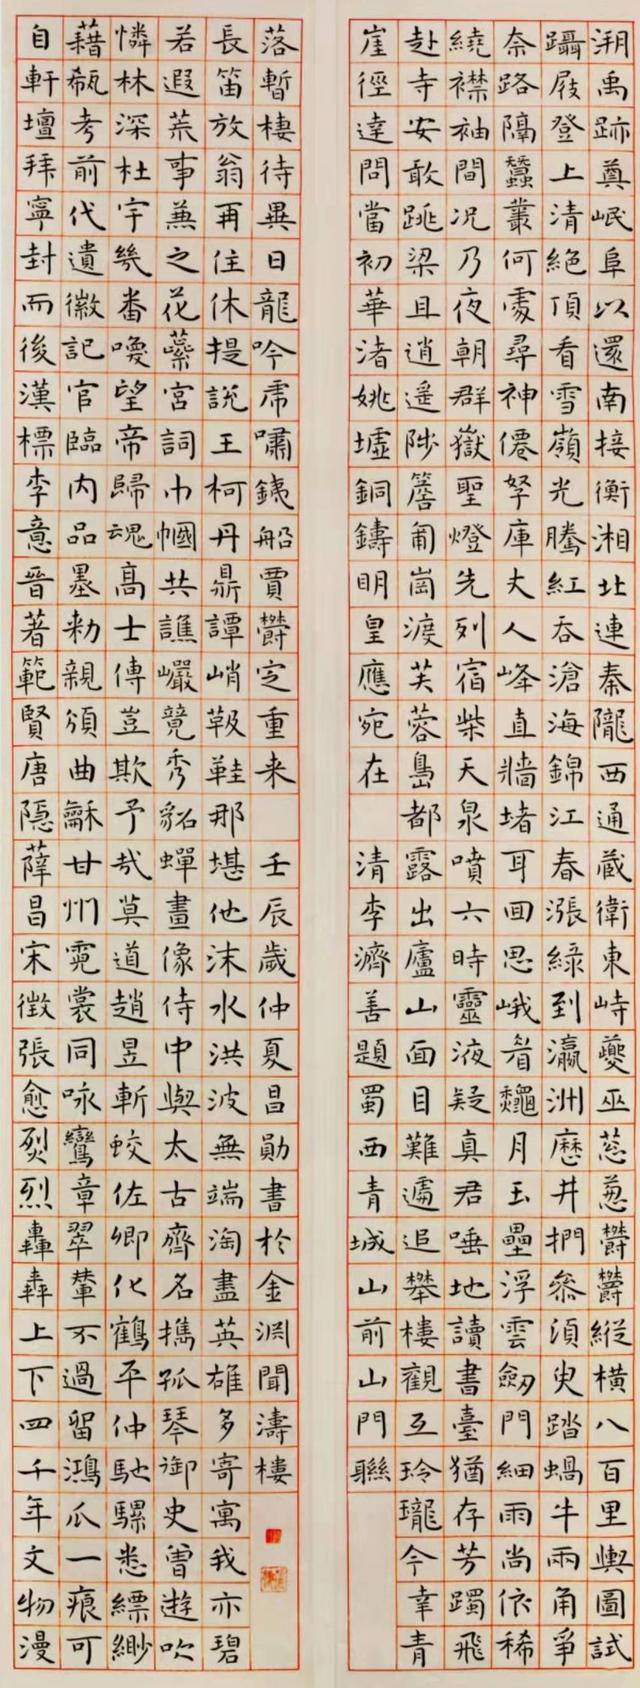 溯禹跡奠岷阜以還南接衡湘北連秦隴西通藏衛東峙夔巫葱葱鬱鬱縱橫八百里輿圖試
躡屐登上清絕頂看雪嶺光騰紅吞滄海錦江春漲綠到瀛洲歷井捫叅須臾踏蝸牛兩角爭
奈路隔蠶叢何處尋神僊帑庫丈人峰直牆堵耳回思峨眉龝月玉壘浮雲劒門細雨尚依稀
繞襟袖間況乃夜朝群嶽聖燈先列宿柴天泉噴六時靈液疑真君唾地讀書臺猶存芳躅飛
赴寺安敢跳梁且逍遙陟簷匍崗渡芙蓉島都露出廬山面目難遽追攀樓觀互玲瓏今幸青
崖徑達問當初華渚姚墟銅鑄明皇應宛在 清李濟善題蜀西青城山前山門聯
自軒壇拜寧封而後漢標李意晉著範賢唐隱薛昌宋徵張愈烈烈轟轟上下四千年文物漫
藉瓻考前代遺徽記官臨內品墨勅親頒曲龢甘州霓裳同咏鸞章翠輦不過留鴻爪一痕可
憐林深杜宇幾番喚望帝歸魂高士傳豈欺予哉莫道趙昱斬蛟佐卿化鶴平仲馳騾悉縹緲
若遐荒事兼之花蕊宮詞巾幗共譙巖競秀貂蟬畫像侍中與太古齊名攜孤琴御史曾遊吹
長笛放翁再住休提說王柯丹鼎譚峭靸鞋那堪他沫水洪波無端淘盡英雄多寄寓我亦碧
落暫棲待異日龍吟虎嘯鐵船賈鬱定重來 壬辰歲仲夏昌勛書於金淵聞濤樓